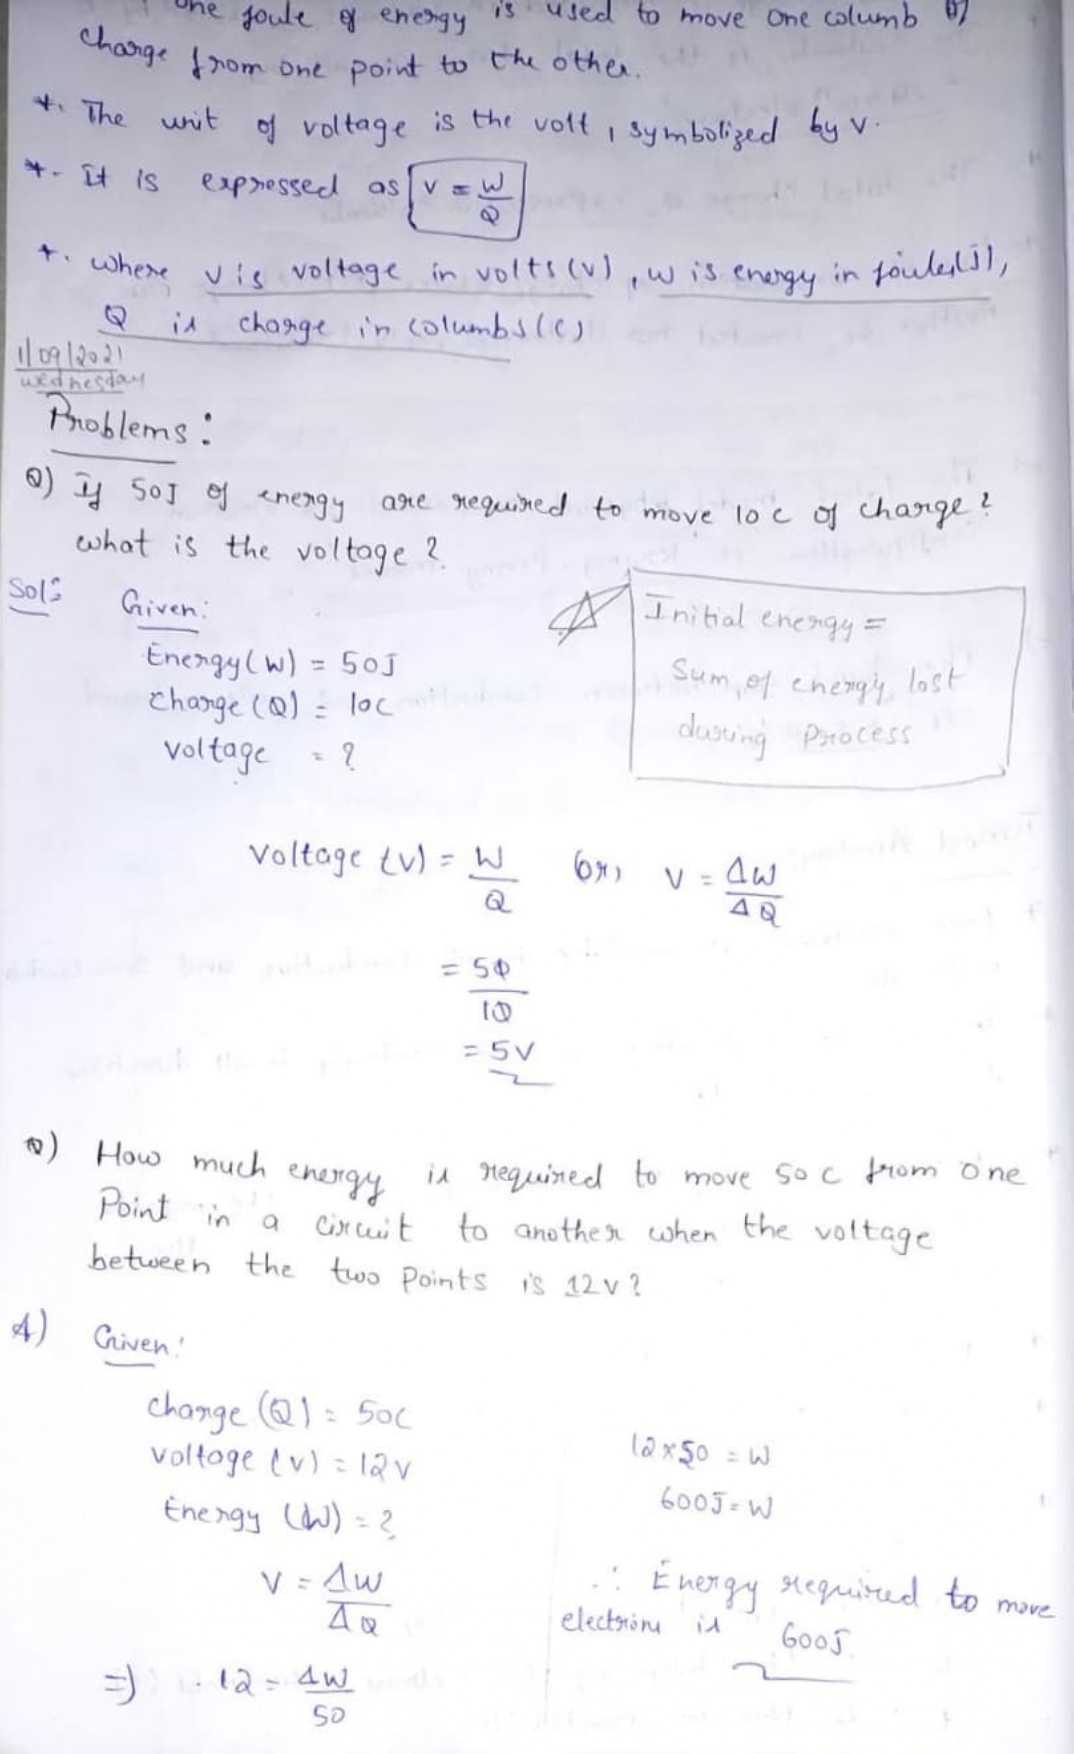 one joule of energy is used to move one columb of
charge from one point to the other.
*. The unit of voltage is the volt, symbolized by v.
*. It is expressed as V = W/Q
*. where V is voltage in volts (v), W is energy in joules(J),
Q is charge in columbs (c)
1/09/2021
wednesday
Problems:
Q) If 50J of energy are required to move 10c of charge?
what is the voltage?
Sol:
Given:
Energy(W) = 50J
charge (Q) = 10c
voltage = ?
Initial energy =
Sum of energy lost
during process
Voltage (v) = W/Q (or) V = ΔW/ΔQ
= 50/10
= 5V
Q) How much energy is required to move 50 c from one
Point in a circuit to another when the voltage
between the two Points is 12v?
A) Given:
charge (Q) = 50c
voltage (v) = 12v
Energy (W) = ?
V = ΔW/ΔQ
=) 12 = ΔW/50
12x50 = W
600J = W
∴ Energy required to move
electrons is 600J